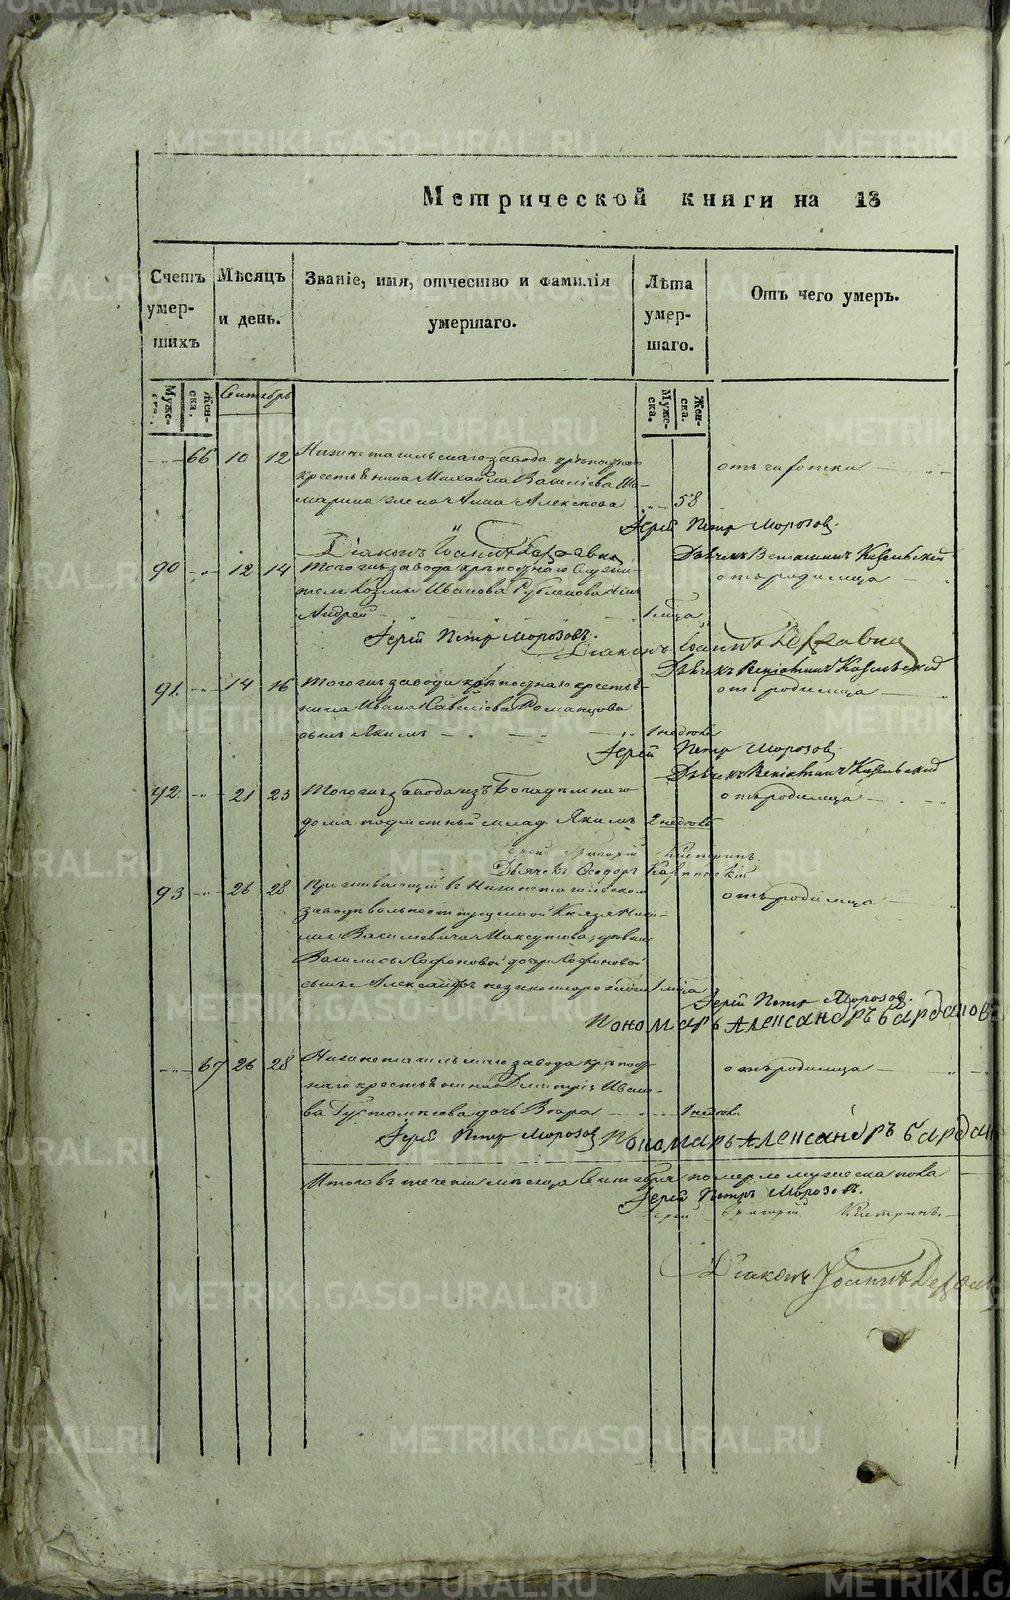 METRIKI.GASO-URAL.RU
Метрической книги на 18
Счетъ умер-шихъ
Мѣсяцъ и день.
Званіе, имя, отчество и фамилія умершаго.
Лѣта умер-шаго.
Отъ чего умеръ.
Муже-ска.
Жен-ска.
Сентябрь
Муже-ска.
Жен-ска.
66 10 12 Нижнетагильскаго завода крѣпостнаго
крестьянина Михайла Василіева Ша-
марина жена Анна Алексѣева 58 отъ чахотки
Іерей Петръ Морозовъ.
Діаконъ Іоаннъ Державинъ
Дьячекъ Веніаминъ
90 12 14 Тогоже завода крѣпостнаго служи-
теля Козмы Иванова сынъ
Андрей 1 мѣсяца отъ родимца
Іерей Петръ Морозовъ.
Діаконъ Іоаннъ Державинъ
Дьячекъ Веніаминъ
91. 14 16 Тогоже завода крѣпостнаго крестья-
нина Ивана Савеліева Романцова
сынъ Якимъ 1 недели отъ родимца
Іерей Петръ Морозовъ.
Дьячекъ Веніаминъ
92. 21 23 Тогоже завода изъ Богадѣленнаго
дома младъ Якимъ 2 недель отъ родимца
Іерей Григорій
Дьячекъ Феодоръ
93 26 28 Проживающей въ Нижнетагильскомъ
заводѣ вольноотпущенной Князя
Васильевича Максутова
Василисы Софоновой дочери Софоновой
сынъ Александръ незаконнорожденный 1 мѣсяца отъ родимца
Іерей Петръ Морозовъ.
Пономарь Александръ Бардановъ
67 26 28 Нижнетагильскаго завода крѣпост-
наго крестьянина Димитрія Ивано-
ва дочь Вѣра 1 недели отъ родимца
Іерей Петръ Морозовъ Пономарь Александръ Бардан
Итого въ теченіи мѣсяца Сентября померло мужеска пола
Іерей Петръ Морозовъ.
Іерей Григорій
Діаконъ Іоаннъ